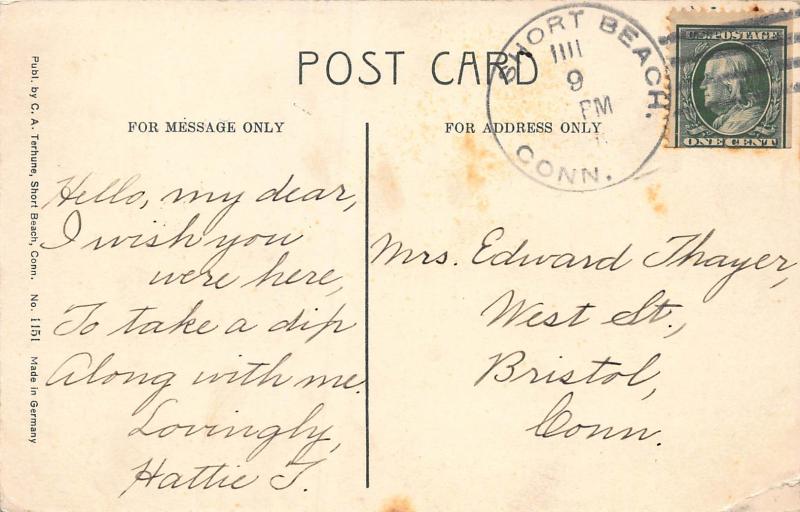 POST CARD
FOR MESSAGE ONLY
FOR ADDRESS ONLY
SHORT BEACH.
9
PM
CONN.
U.S. POSTAGE
ONE CENT
Publ. by C. A. Terhune, Short Beach, Conn. No. 1151 Made in Germany
Hello, my dear,
I wish you
were here,
To take a dip
Along with me.
Lovingly,
Hattie T.
Mrs. Edward Thayer,
West St.,
Bristol,
Conn.